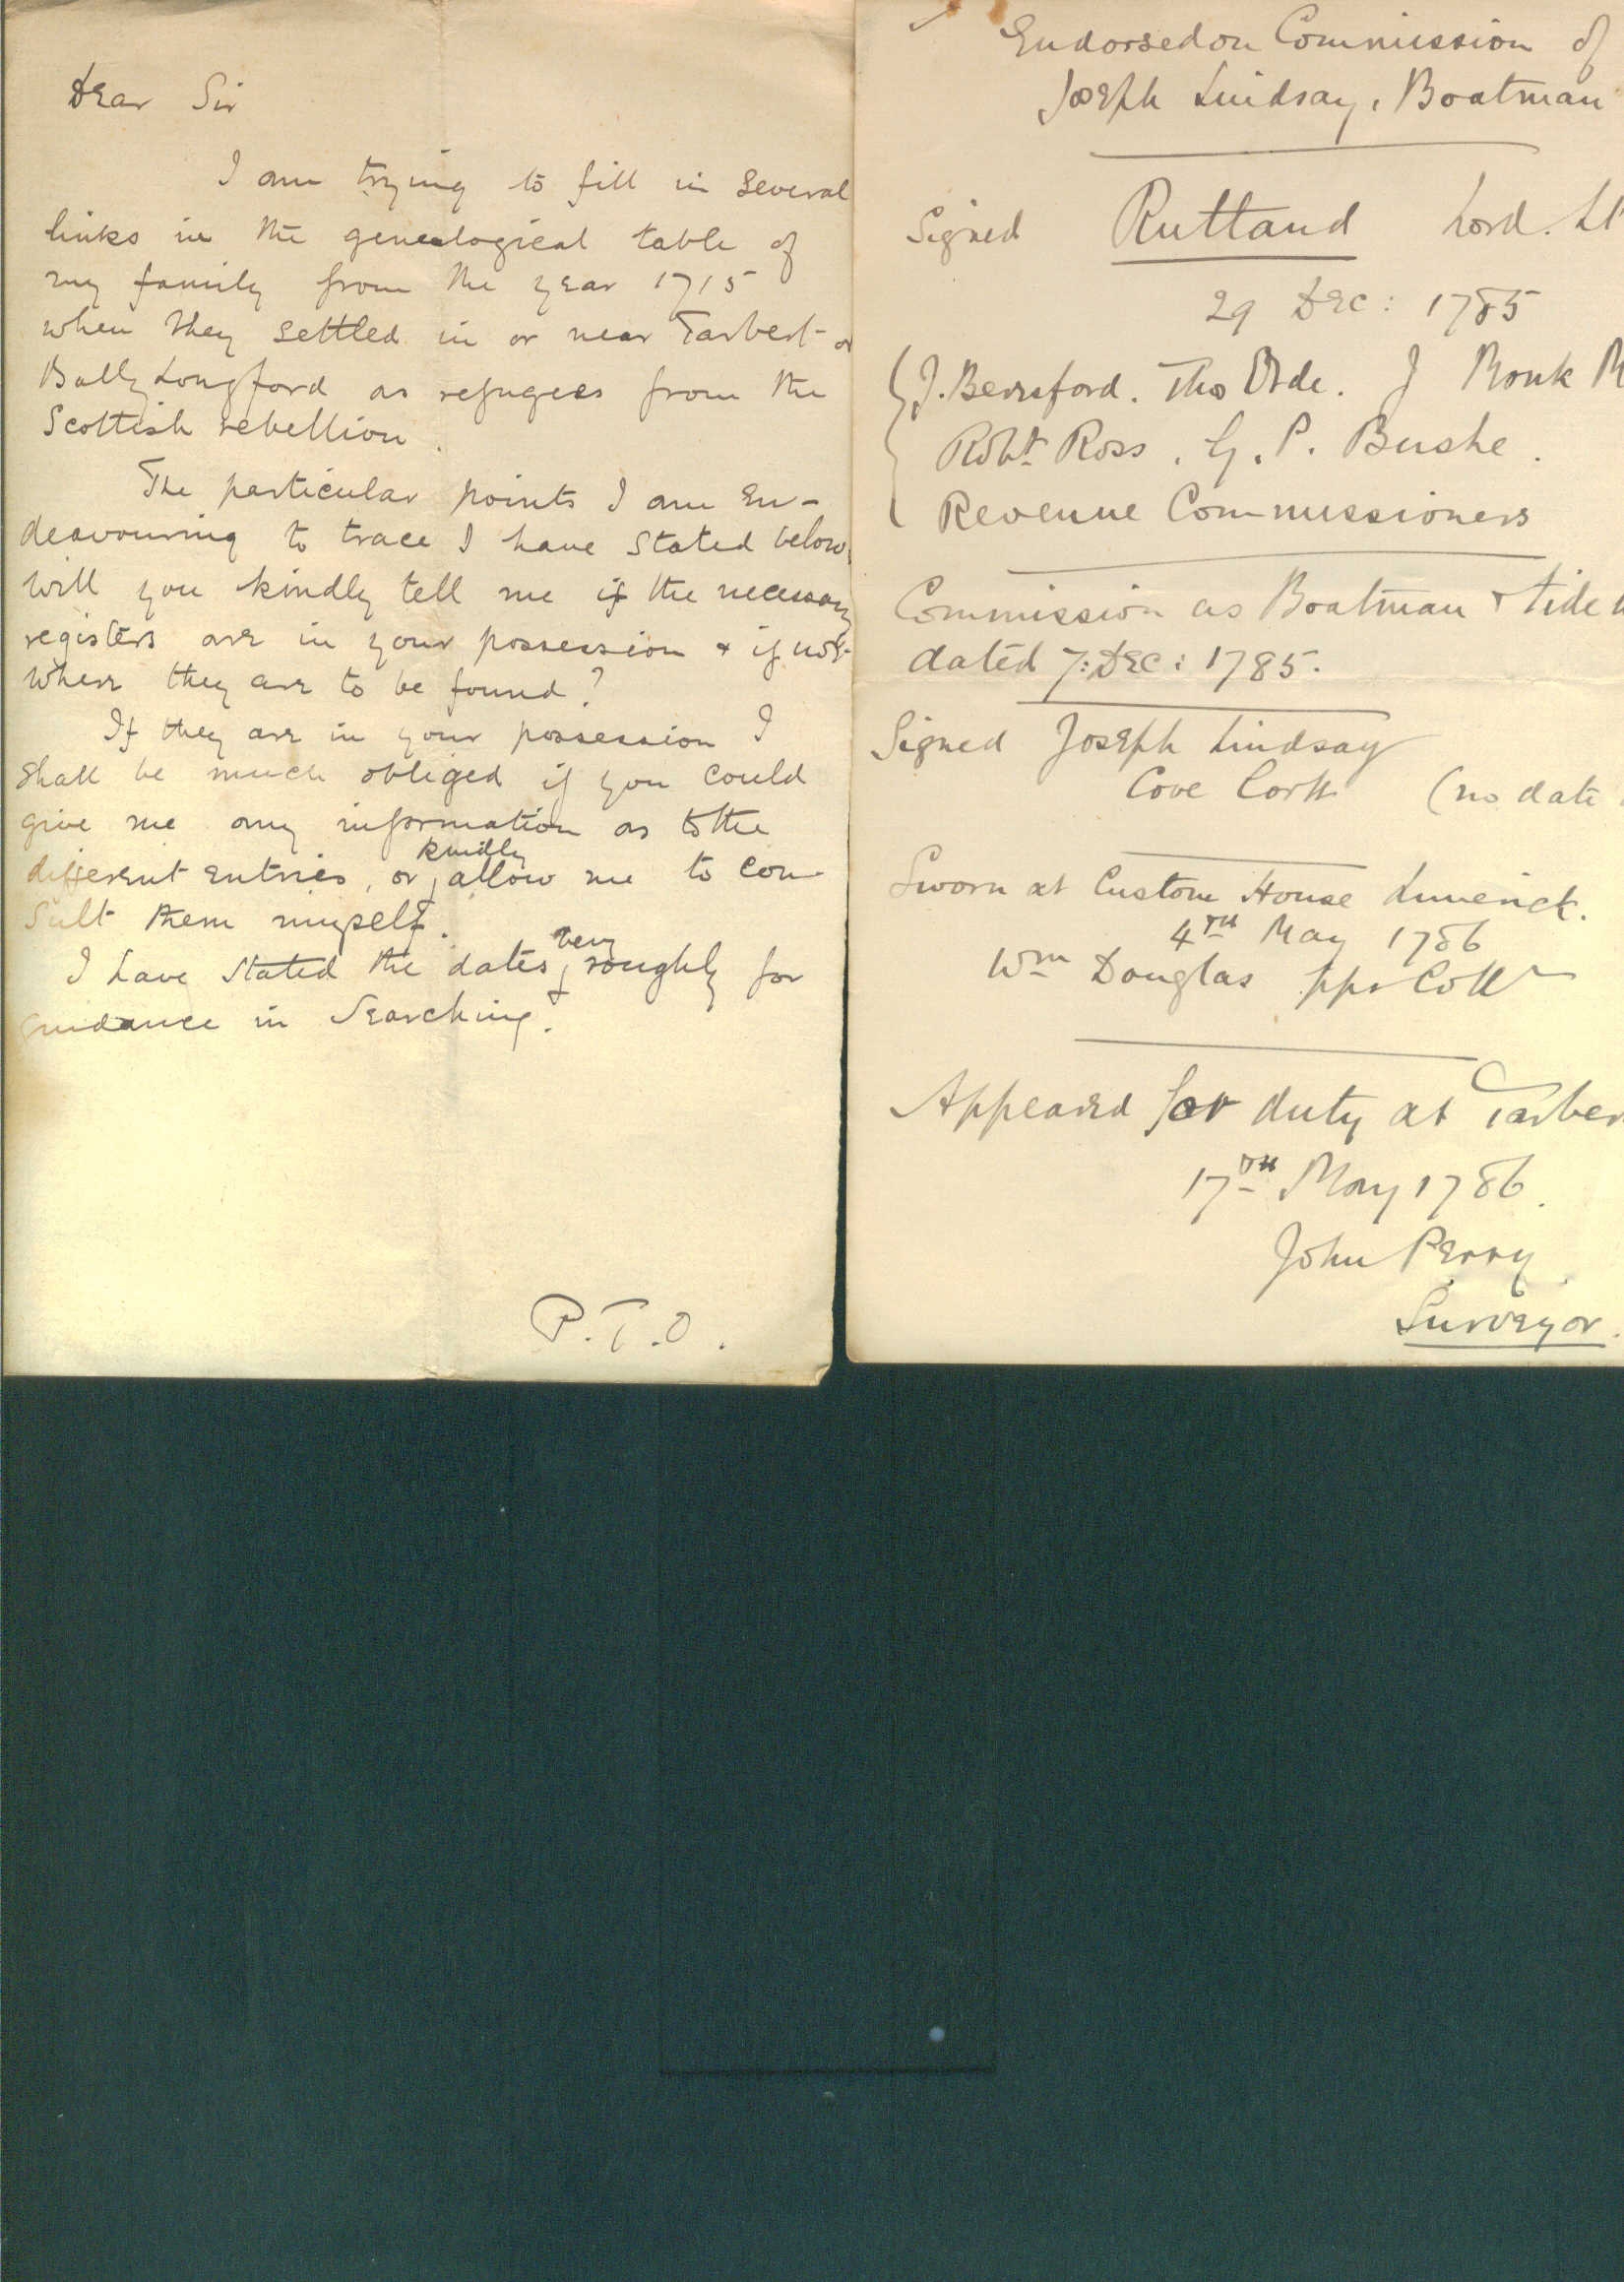 Dear Sir
I am trying to fill in several
links in the genealogical table of
my family from the year 1715
when they settled in or near Tarbert or
Ballylongford as refugees from the
Scottish rebellion.
The particular points I am en-
deavouring to trace I have stated below,
will you kindly tell me if the necessary
registers are in your possession & if not
where they are to be found?
If they are in your possession I
shall be much obliged if you could
give me any information as to the
different entries, or kindly allow me to con-
sult them myself.
I have stated the dates very roughly for
guidance in searching.
P.T.O.
Endorsed on Commission of
Joseph Lindsay, Boatman
Signed Rutland Lord. Lt
29 Dec: 1785
J. Beresford. Tho Orde. J Monk M
Robt Ross. G. P. Bushe.
Revenue Commissioners
Commission as Boatman & tide
dated 7: Dec: 1785.
Signed Joseph Lindsay
Cove Cork (no date
Sworn at Custom House Limerick.
4th May 1786
Wm Douglas ppr Collr
Appeared for duty at Tarber
17th May 1786.
John Perry
Surveyor.